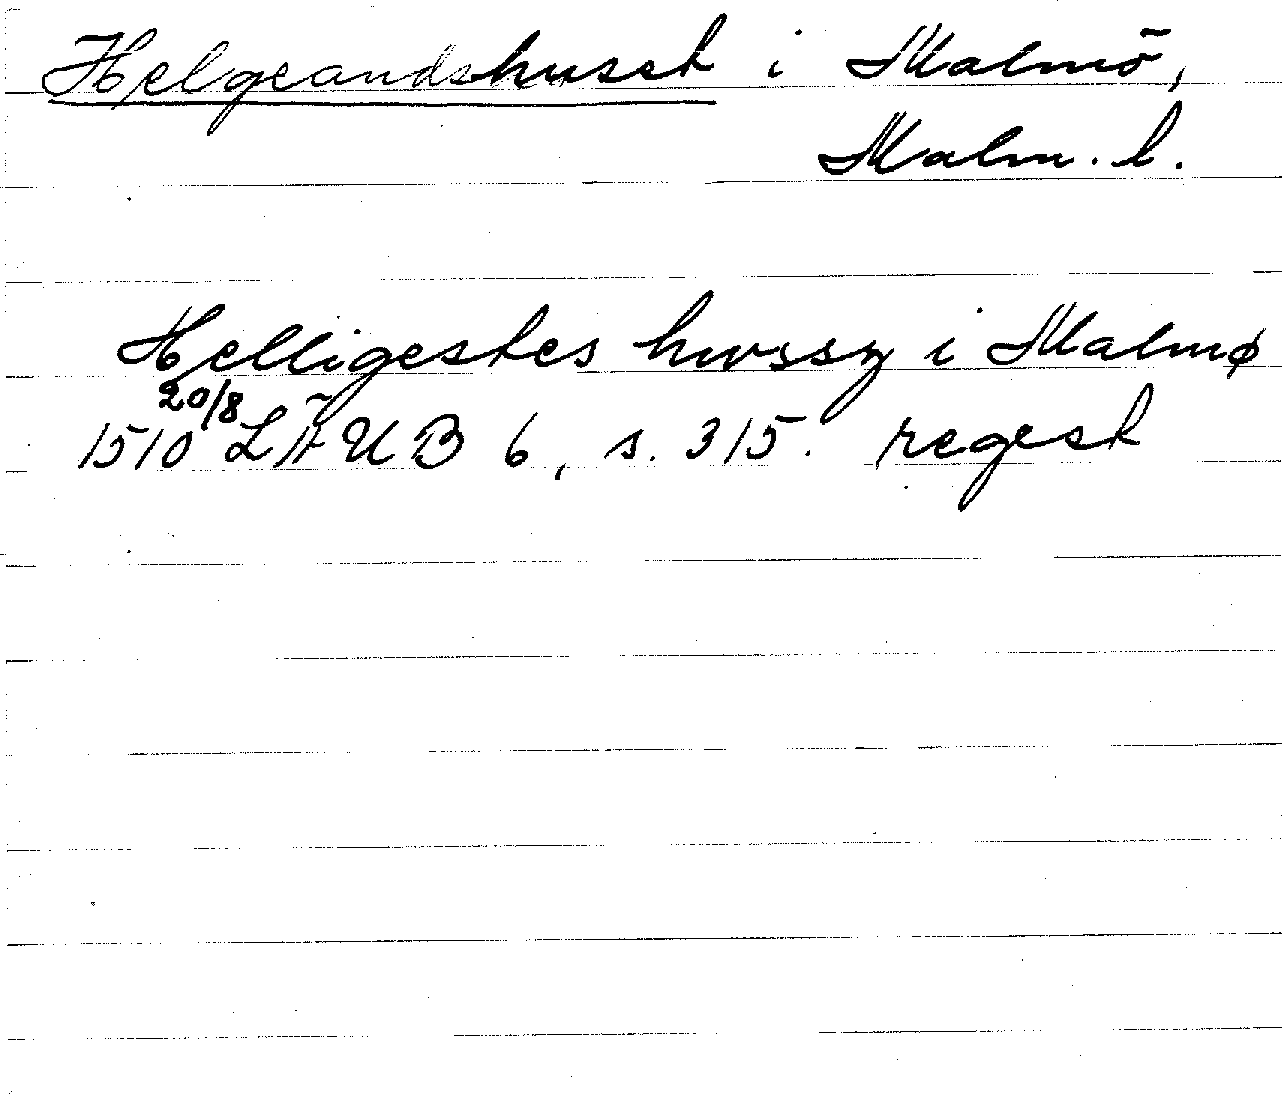 Helgeandshuset i Malmö,
Malm. l.
Helligestes hwssz i Malmø
1510 20/8 LÄUB 6, s. 315. regest